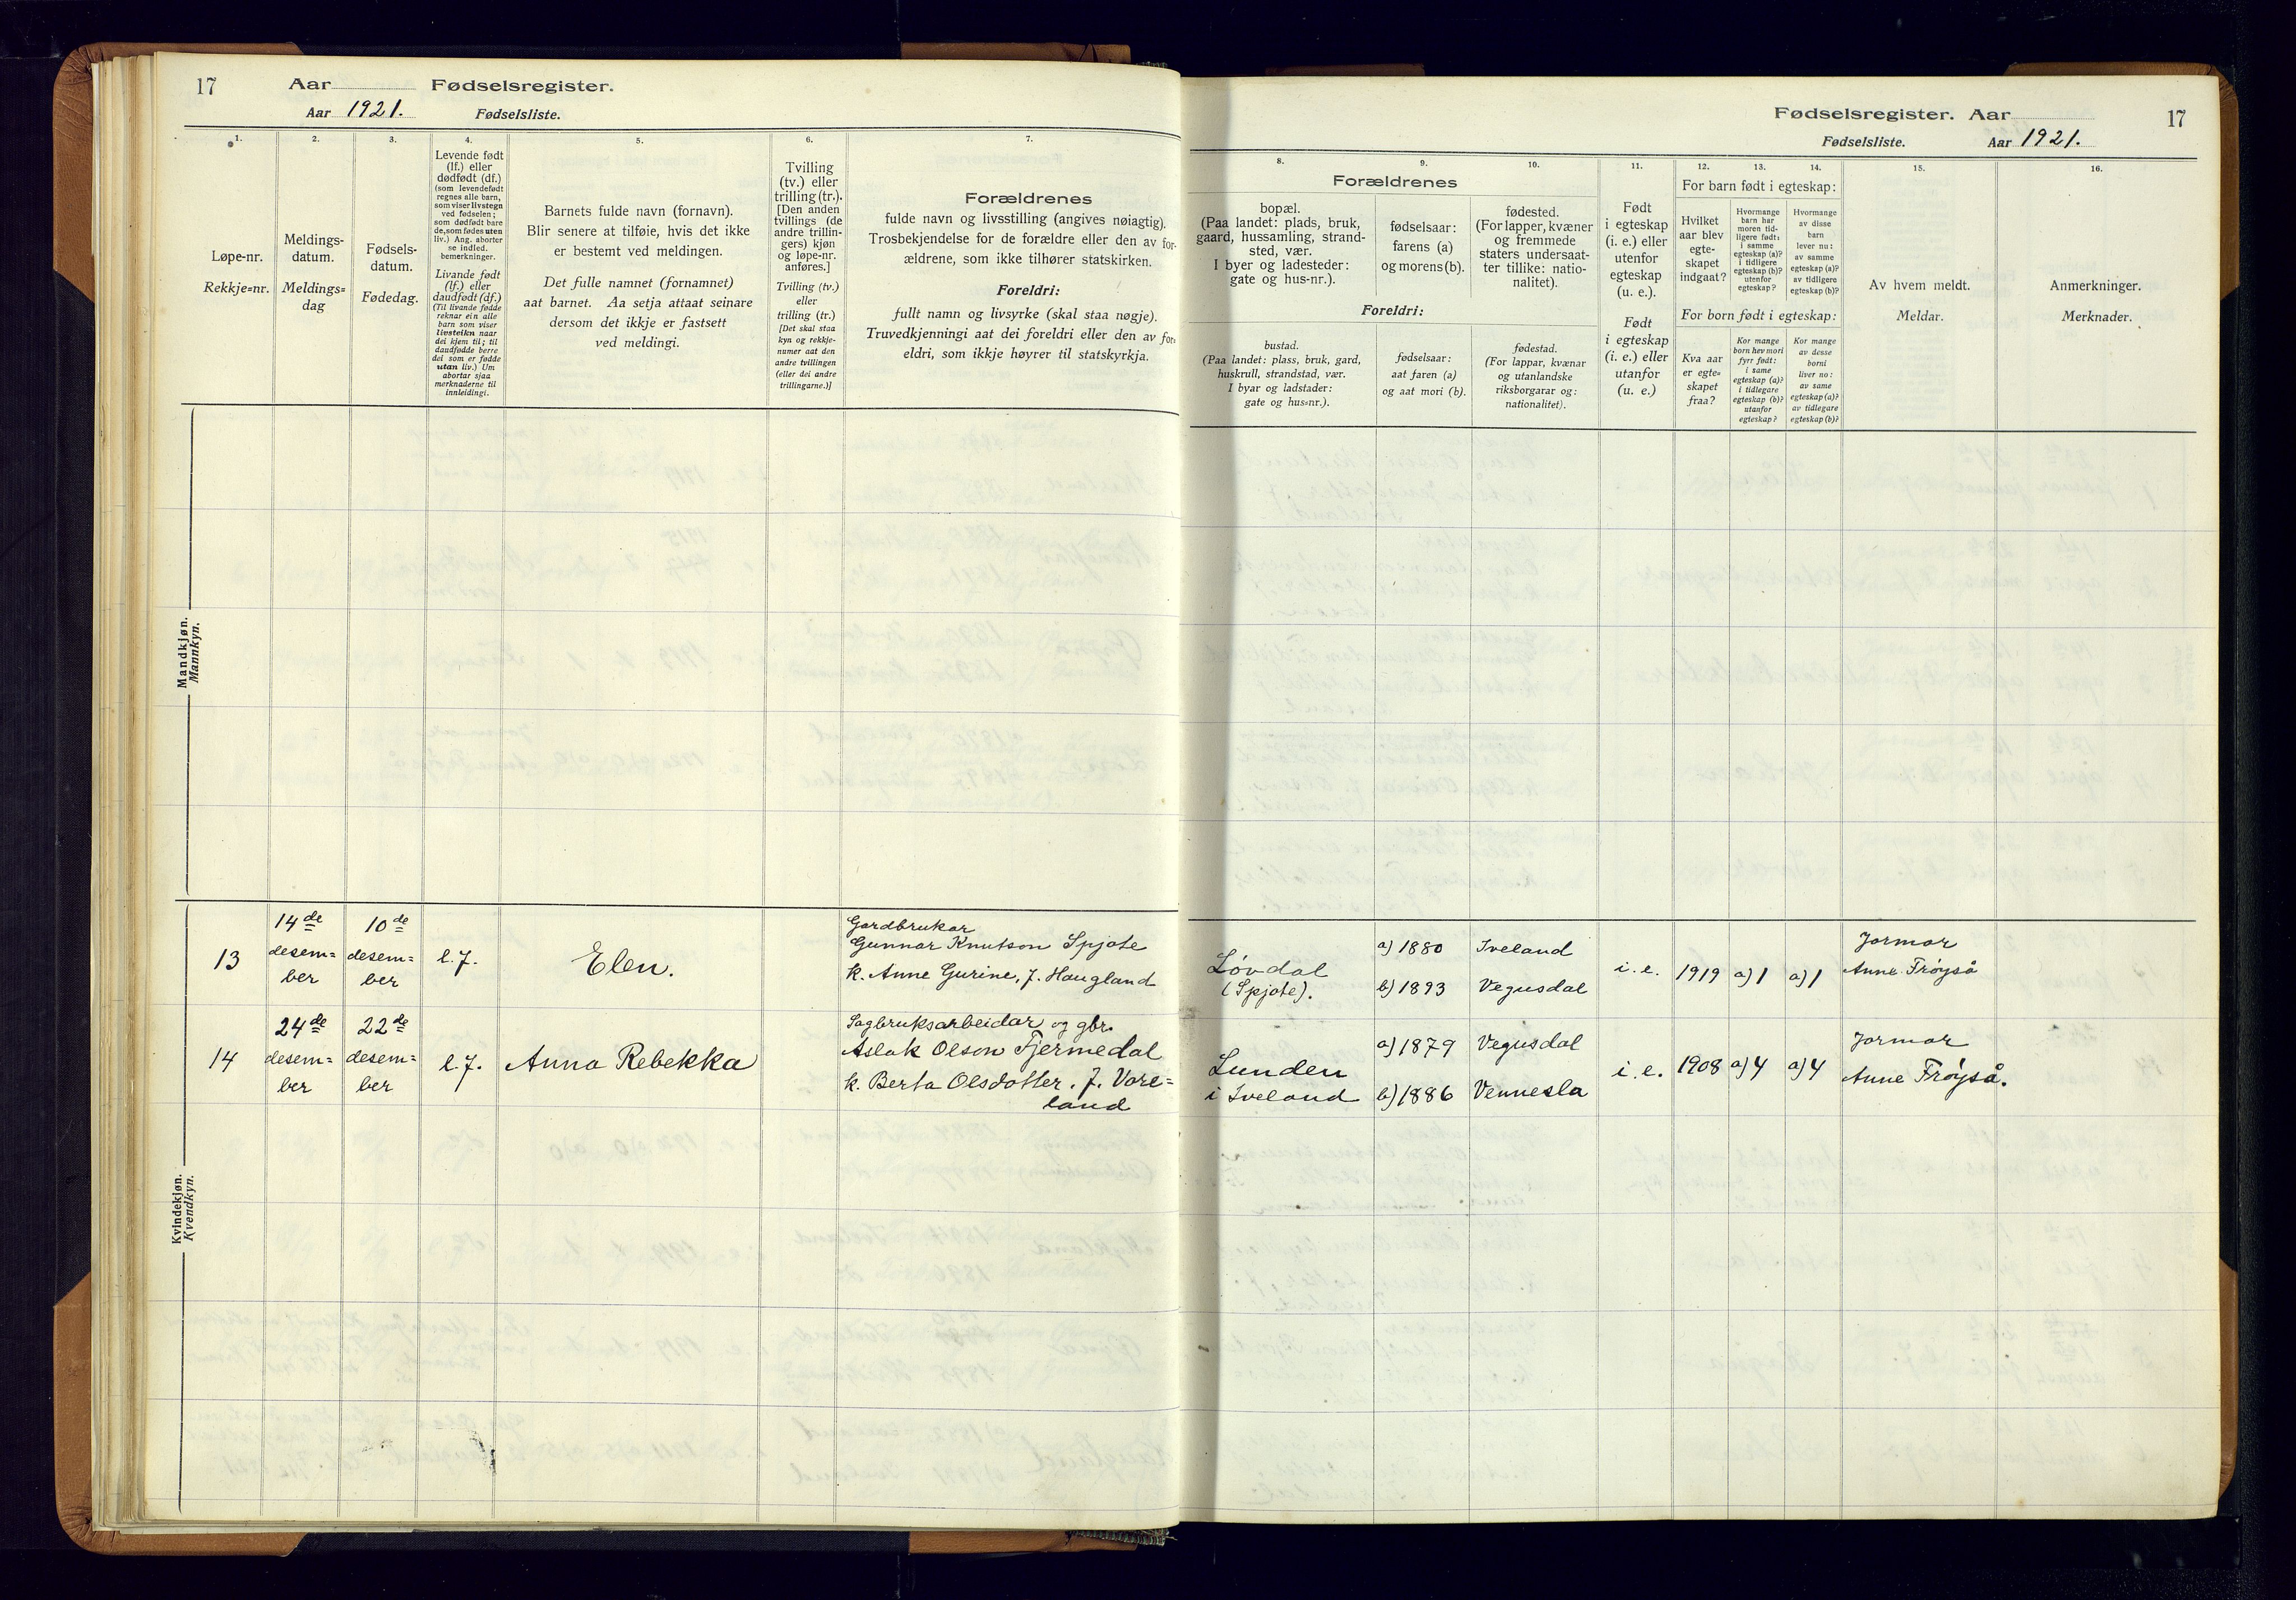 17
Aar
Fødselsregister.
Aar 1921.
Fødselsliste.
1.
2.
3.
4.
5.
6.
7.
Løpe-nr.
Rekkje=nr.
Meldings-
datum.
Meldings=
dag
Fødsels-
datum.
Fødedag.
Levende født
(lf.) eller
dødfødt (df.)
(som levendefødt
regnes alle barn,
som viser livstegn
ved fødselen;
som dødfødt bare
de, som fødes uten
liv.) Ang. aborter
se indled.
bemerkninger.
Livande født
(lf.) eller
daudfødt (df.)
(Til livande fødde
reknar ein alle
barn som viser
livsteikn naar
dei kjem til; til
daudfødde berre
dei som er fødde
utan liv.) Um
abortar sjaa
merknaderne til
innleidingi.
Barnets fulde navn (fornavn).
Blir senere at tilføie, hvis det ikke
er bestemt ved meldingen.
Det fulle namnet (fornamnet)
aat barnet. Aa setja attaat seinare
dersom det ikkje er fastsett
ved meldingi.
Tvilling
(tv.) eller
trilling (tr.).
[Den anden
tvillings (de
andre trillin-
gers) kjøn
og løpe-nr.
anføres.]
Tvilling (tv.)
eller
trilling (tr.)
[Det skal staa
kyn og rekkje-
numer aat den
andre tvillingen
(eller dei andre
trillingarne.)]
Forældrenes
fulde navn og livsstilling (angives nøiagtig).
Trosbekjendelse for de forældre eller den av for-
ældrene, som ikke tilhører statskirken.
Foreldri:
fullt namn og livsyrke (skal staa nøgje).
Truvedkjenningi aat dei foreldri eller den av for=
eldri, som ikkje høyrer til statskyrkja.
Mandkjøn.
Mannkyn.
Kvindekjøn.
Kvendkyn.
13
14de
desem=
ber
10de
desem=
ber
l.f.
Elen.
Gardbrukar
Gunnar Knutson Spjote
k. Anne Gurine, f. Haugland
14
24de
desem=
ber
22de
desem=
ber
l.f.
Anna Rebekka
Sagbruksarbeidar og gbr.
Aslak Olson Tjermedal
k. Berta Olsdotter. f. Vare=
land
Fødselsregister. Aar
17
Fødselsliste.
Aar 1921.
8.
9.
10.
11.
12.
13.
14.
15.
16.
Forældrenes
bopæl.
(Paa landet: plads, bruk,
gaard, hussamling, strand-
sted, vær.
I byer og ladesteder:
gate og hus-nr.).
fødselsaar:
farens (a)
og morens (b).
fødested.
(For lapper, kvæner
og fremmede
staters undersaat-
ter tillike: natio-
nalitet).
Foreldri:
bustad.
(Paa landet: plass, bruk, gard,
huskrull, strandstad, vær.
I byar og ladstader:
gate og hus=nr.).
fødselsaar:
aat faren (a)
og aat mori (b).
fødestad.
(For lappar, kvænar
og utanlandske
riksborgarar og:
nationalitet).
Født
i egteskap
(i. e.) eller
utenfor
egteskap
(u. e.).
Født
i egteskap
(i. e.) eller
utanfor
(u. e.)
For barn født i egteskap:
Hvilket
aar blev
egte-
skapet
indgaat?
Hvormange
barn har
moren tid-
ligere født:
i samme
egteskap (a)?
i tidligere
egteskap (b)?
utenfor
egteskap?
Hvormange
av disse
barn
lever nu:
av samme
egteskap (a)?
av tidligere
egteskap (b)?
For born født i egteskap:
Kva aar
er egte=
skapet
fraa?
Kor mange
born hev mori
fyrr født:
i same
egteskap (a)?
i tidlegare
egteskap (b)?
utanfor
egteskap?
Kor mange
av desse
borni
liver no:
av same
egteskap (a)?
av tidlegare
egteskap (b)?
Av hvem meldt.
Meldar.
Anmerkninger.
Merknader.
Løvdal
(Spjote).
a) 1880
b) 1893
Iveland
Vegusdal
i. e.
1919
a) 1
a) 1
Jormor
Anne Frøyså
Lunden
i Iveland
a) 1879
b) 1886
Vegusdal
Vennesla
i. e.
1908
a) 4
a) 4
Jormor
Anne Frøyså.